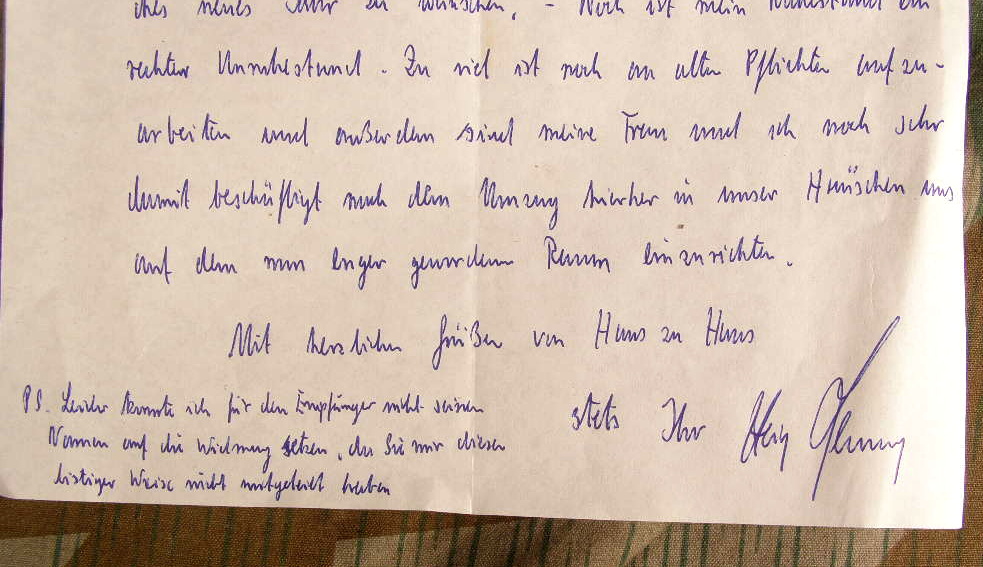 iches neues Jahr zu wünschen. - Noch ist mein Ruhestand ein
rechter Unruhestand. Zu viel ist noch an alten Pflichten aufzu-
arbeiten und außerdem sind meine Frau und ich noch sehr
damit beschäftigt nach dem Umzug hierher in unser Häuschen uns
auf dem nun enger gewordenen Raum einzurichten.
Mit herzlichen Grüßen von Haus zu Haus
stets Ihr
PS. Leider konnte ich für den Empfänger nicht seinen
Namen auf die Widmung setzen, da Sie mir diesen
listiger Weise nicht mitgeteilt haben